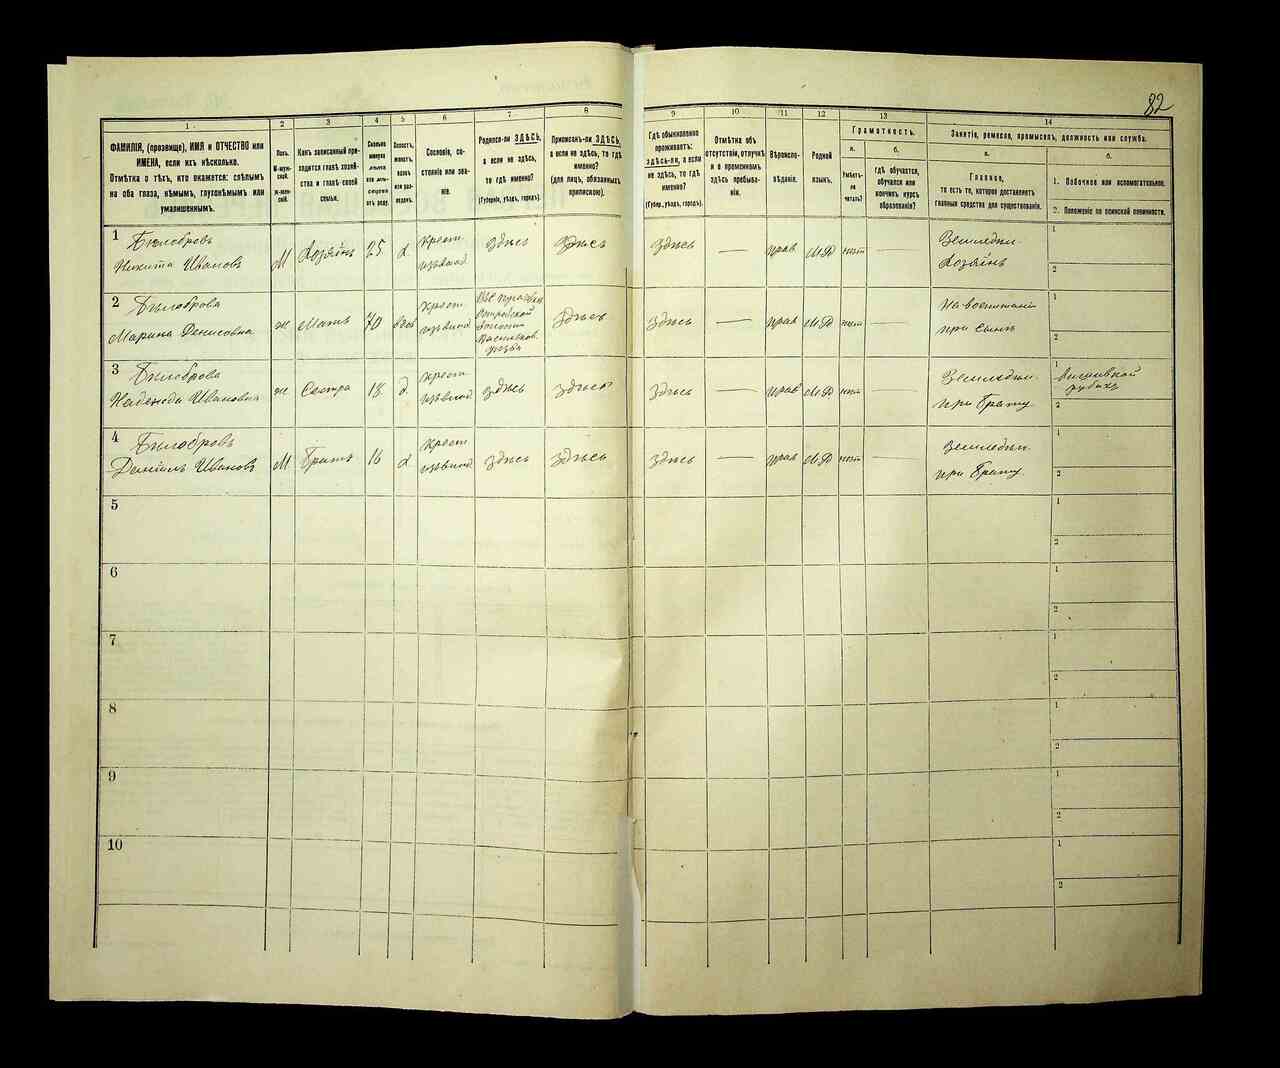 82
1
2
3
4
5
6
7
8
9
10
11
12
13
14
ФАМИЛІЯ, (прозвище), ИМЯ и ОТЧЕСТВО или
ИМЕНА, если ихъ нѣсколько.
Отмѣтка о тѣхъ, кто окажется: слѣпымъ
на оба глаза, нѣмымъ, глухонѣмымъ или
умалишеннымъ.
Полъ.
М-муж-
ской.
ж-жен-
скій.
Какъ записанный при-
ходится главѣ хозяй-
ства и главѣ своей
семьи.
Сколько
минуло
лѣтъ
или мѣ-
сяцевъ
отъ роду.
Холостъ,
женатъ,
вдовъ
или раз-
веденъ.
Сословіе, со-
стояніе или зва-
ніе.
Родился-ли ЗДѢСЬ,
а если не здѣсь,
то гдѣ именно?
(Губернія, уѣздъ, городъ).
Приписанъ-ли ЗДѢСЬ,
а если не здѣсь, то гдѣ
именно?
(для лицъ, обязанныхъ
припискою).
Гдѣ обыкновенно
проживаетъ:
здѣсь-ли, а если
не здѣсь, то гдѣ
именно?
(Губер., уѣздъ, городъ).
Отмѣтка объ
отсутствіи, отлучкѣ
и о временномъ
здѣсь пребыва-
ніи.
Вѣроиспо-
вѣданіе.
Родной
языкъ.
Грамотность.
а.
Умѣетъ-
ли
читать?
б.
гдѣ обучается,
обучался или
кончилъ курсъ
образованія?
Занятіе, ремесло, промыселъ, должность или служба.
а.
Главное,
то есть то, которое доставляетъ
главныя средства для существованія.
б.
1. Побочное или вспомогательное.
2. Положеніе по воинской повинности.
1
Бѣлобровъ
Никита Ивановъ
М
Хозяинъ
25
х
Крест.
здѣсь
Здѣсь
Здѣсь
—
прав
М.Р
нѣт
—
Земледѣл.
Хозяинъ
1
2
2
Бѣлоброва
Марина Денисовна
ж
Мать
70
вдов
Крест.
Здѣсь
Здѣсь
—
прав
М.Р
нѣт
—
при сынѣ
1
2
3
Бѣлоброва
Надежда Ивановна
ж
Сестра
18
д
Крест
здѣсь
здѣсь
Здѣсь
—
прав
М.Р
нѣт
—
Земледѣл.
при Брату
1
рубахъ
2
4
Бѣлобровъ
Данiилъ Ивановъ
М
Братъ
16
х
Крест
здѣсь
здѣсь
Здѣсь
—
прав
М.Р
нѣт
—
Земледѣл.
при Брату
1
2
5
1
2
6
1
2
7
1
2
8
1
2
9
1
2
10
1
2